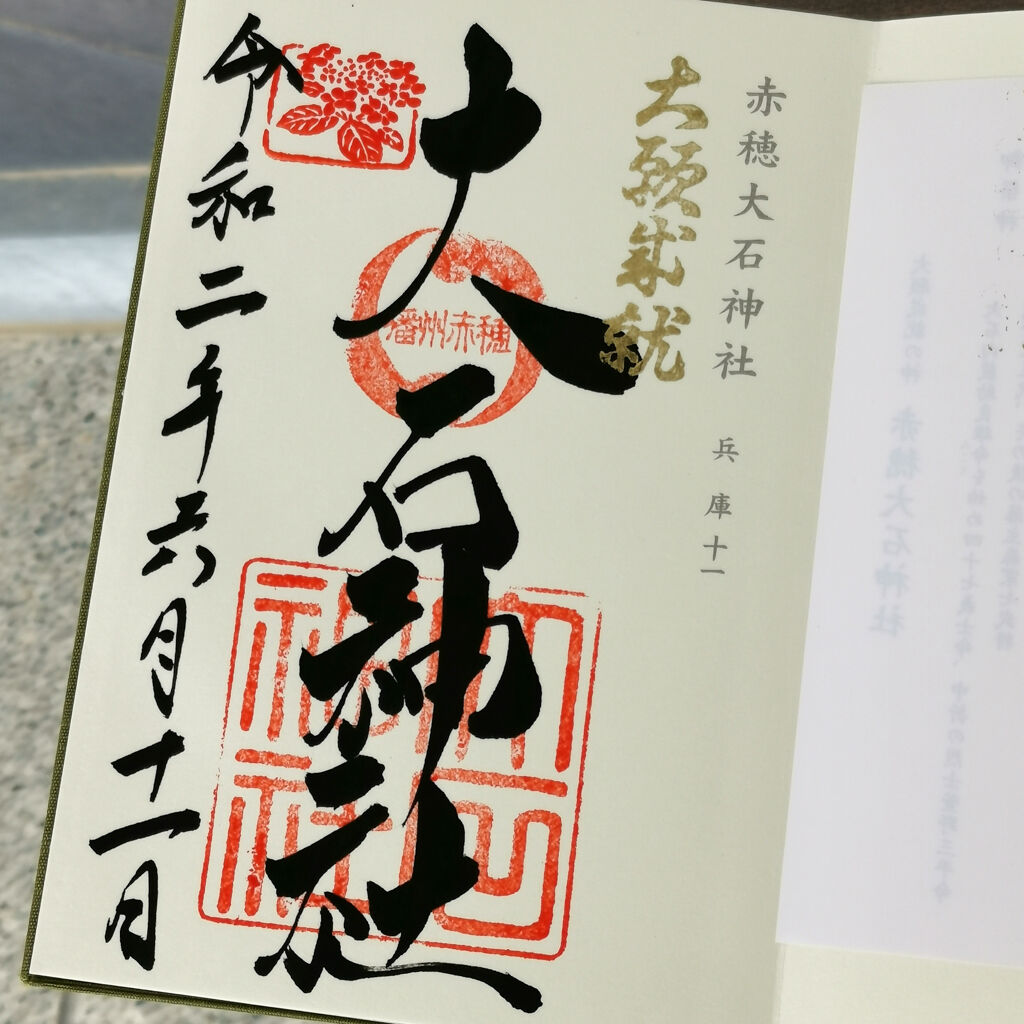 赤穂大石神社 兵庫十一
大願成就
大石神社
播州赤穂
大石神社
令和二年六月十一日
赤穂大石神社